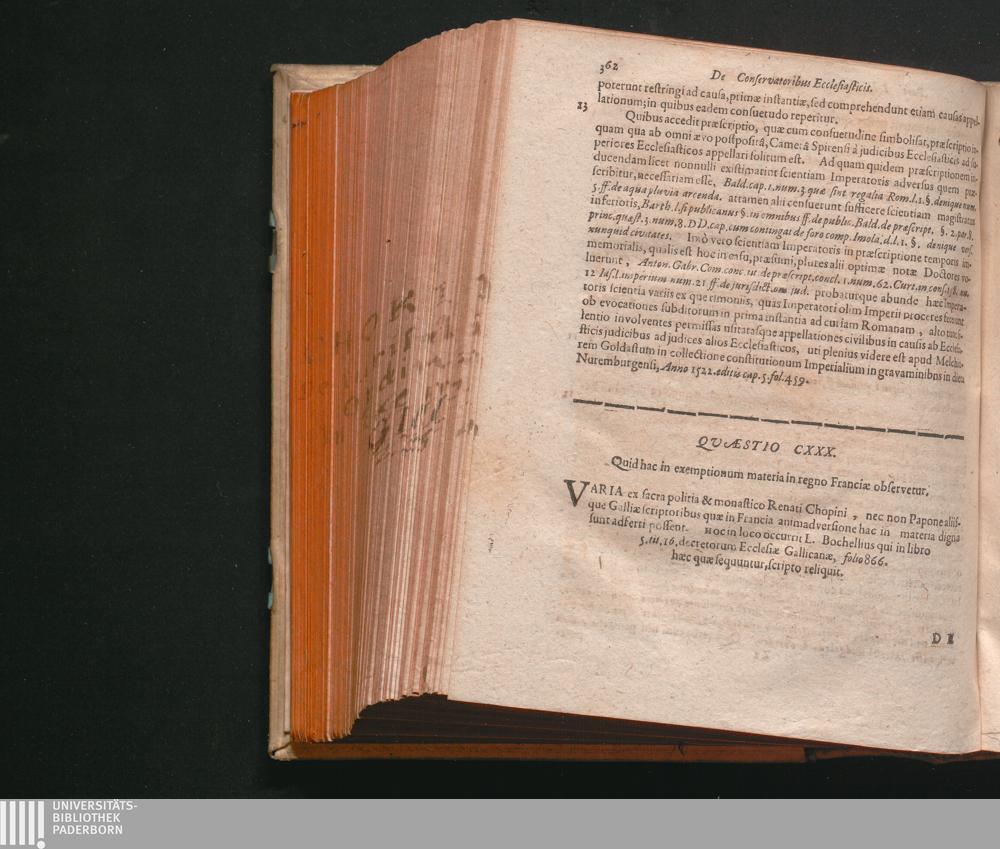 362
De Conservatoribus Ecclesiasticis.
poterunt restringi ad causas, primæ instantiæ, sed comprehendunt etiam causas appel-
lationum; in quibus eadem consuetudo reperitur.
13 Quibus accedit præscriptio, quæ cum consuetudine simbolisat, præscriptio in-
quam qua ab omni ævo postpositâ, Camerâ Spirensi à judicibus Ecclesiasticis ad su-
periores Ecclesiasticos appellari solitum est. Ad quam quidem præscriptionem in-
ducendam licet nonnulli existimarint scientiam Imperatoris adversus quem præ-
scribitur, necessariam esse, Bald. cap. 1. num. 3. quæ sint regalia Rom. l. 1. §. denique num.
5. ff. de aqua pluvia arcenda. attamen alii censuerunt sufficere scientiam magistratus
inferioris, Barth. l. si publicanus §. in omnibus ff. de public. Bald. de præscript. §. 2. par. 8.
princ. quæst. 3. num. 8. DD. cap. cum contingat de foro comp. Imola. d. l. 1. §. denique vers.
nunquid civitates. Imò vero scientiam Imperatoris in præscriptione temporis im-
memorialis, qualis est hoc in casu, præsumi, plures alii optimæ notæ Doctores vo-
luerunt, Anton. Gabr. Com. conc. tit de præscript. concl. 1. num. 62. Curt. in cons.
12 Ias. l. imperium num. 21 ff. de jurisdict. om jud. probaturque abunde hæc Impera-
toris scientia variis ex querimoniis, quas Imperatori olim Imperii proceres fecerunt
ob evocationes subditorum in prima instantia ad curiam Romanam, alto tunc si-
lentio involventes permissas usitatasque appellationes civilibus in causis ab Ecclesia-
sticis judicibus ad judices alios Ecclesiasticos, uti plenius videre est apud Melchio-
rem Goldastum in collectione constitutionum Imperialium in gravaminibus in dieta
Nuremburgensi, Anno 1522. editis cap. 5. fol. 459.
QVÆSTIO CXXX.
Quid hac in exemptionum materia in regno Franciæ observetur.
VARIA ex sacra politia & monastico Renati Chopini, nec non Papone aliis-
que Galliæ scriptoribus quæ in Francia animadversione hac in materia digna
sunt adferri possent. Hoc in loco occurrit L. Bochellius qui in libro
5. tit. 16. decretorum Ecclesiæ Gallicanæ, folio 866.
hæc quæ sequuntur, scripto reliquit.
DE
UNIVERSITÄTS-
BIBLIOTHEK
PADERBORN